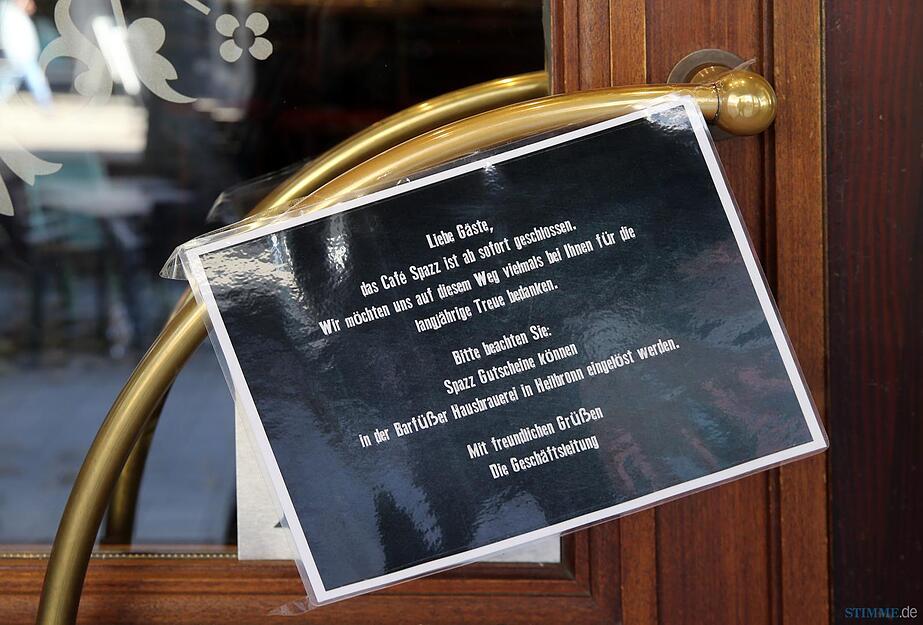 Liebe Gäste,
das Café Spazz ist ab sofort geschlossen.
Wir möchten uns auf diesem Weg vielmals bei Ihnen für die
langjährige Treue bedanken.
Bitte beachten Sie:
Spazz Gutscheine können
in der Barfüßer Hausbrauerei in Heilbronn eingelöst werden.
Mit freundlichen Grüßen
Die Geschäftsleitung
STIMME.de